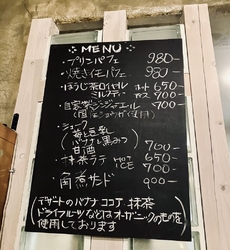 MENU
・プリンパフェ 980-
・焼き芋パフェ 980-
・ほうじ茶ロイヤルミルクティー ホット 650- アイス 700-
・自家製ジンジャエール 700-
(国産ショウガ使用)
・ジュース
(苺と豆乳
バナナと黒みつ
甘酒 700-
・抹茶ラテ HOT 650-
ICE 700-
・角煮サンド 900-
(デザートのバナナ ココア 抹茶
ドライフルーツなどはオーガニックのものを
使用しております)